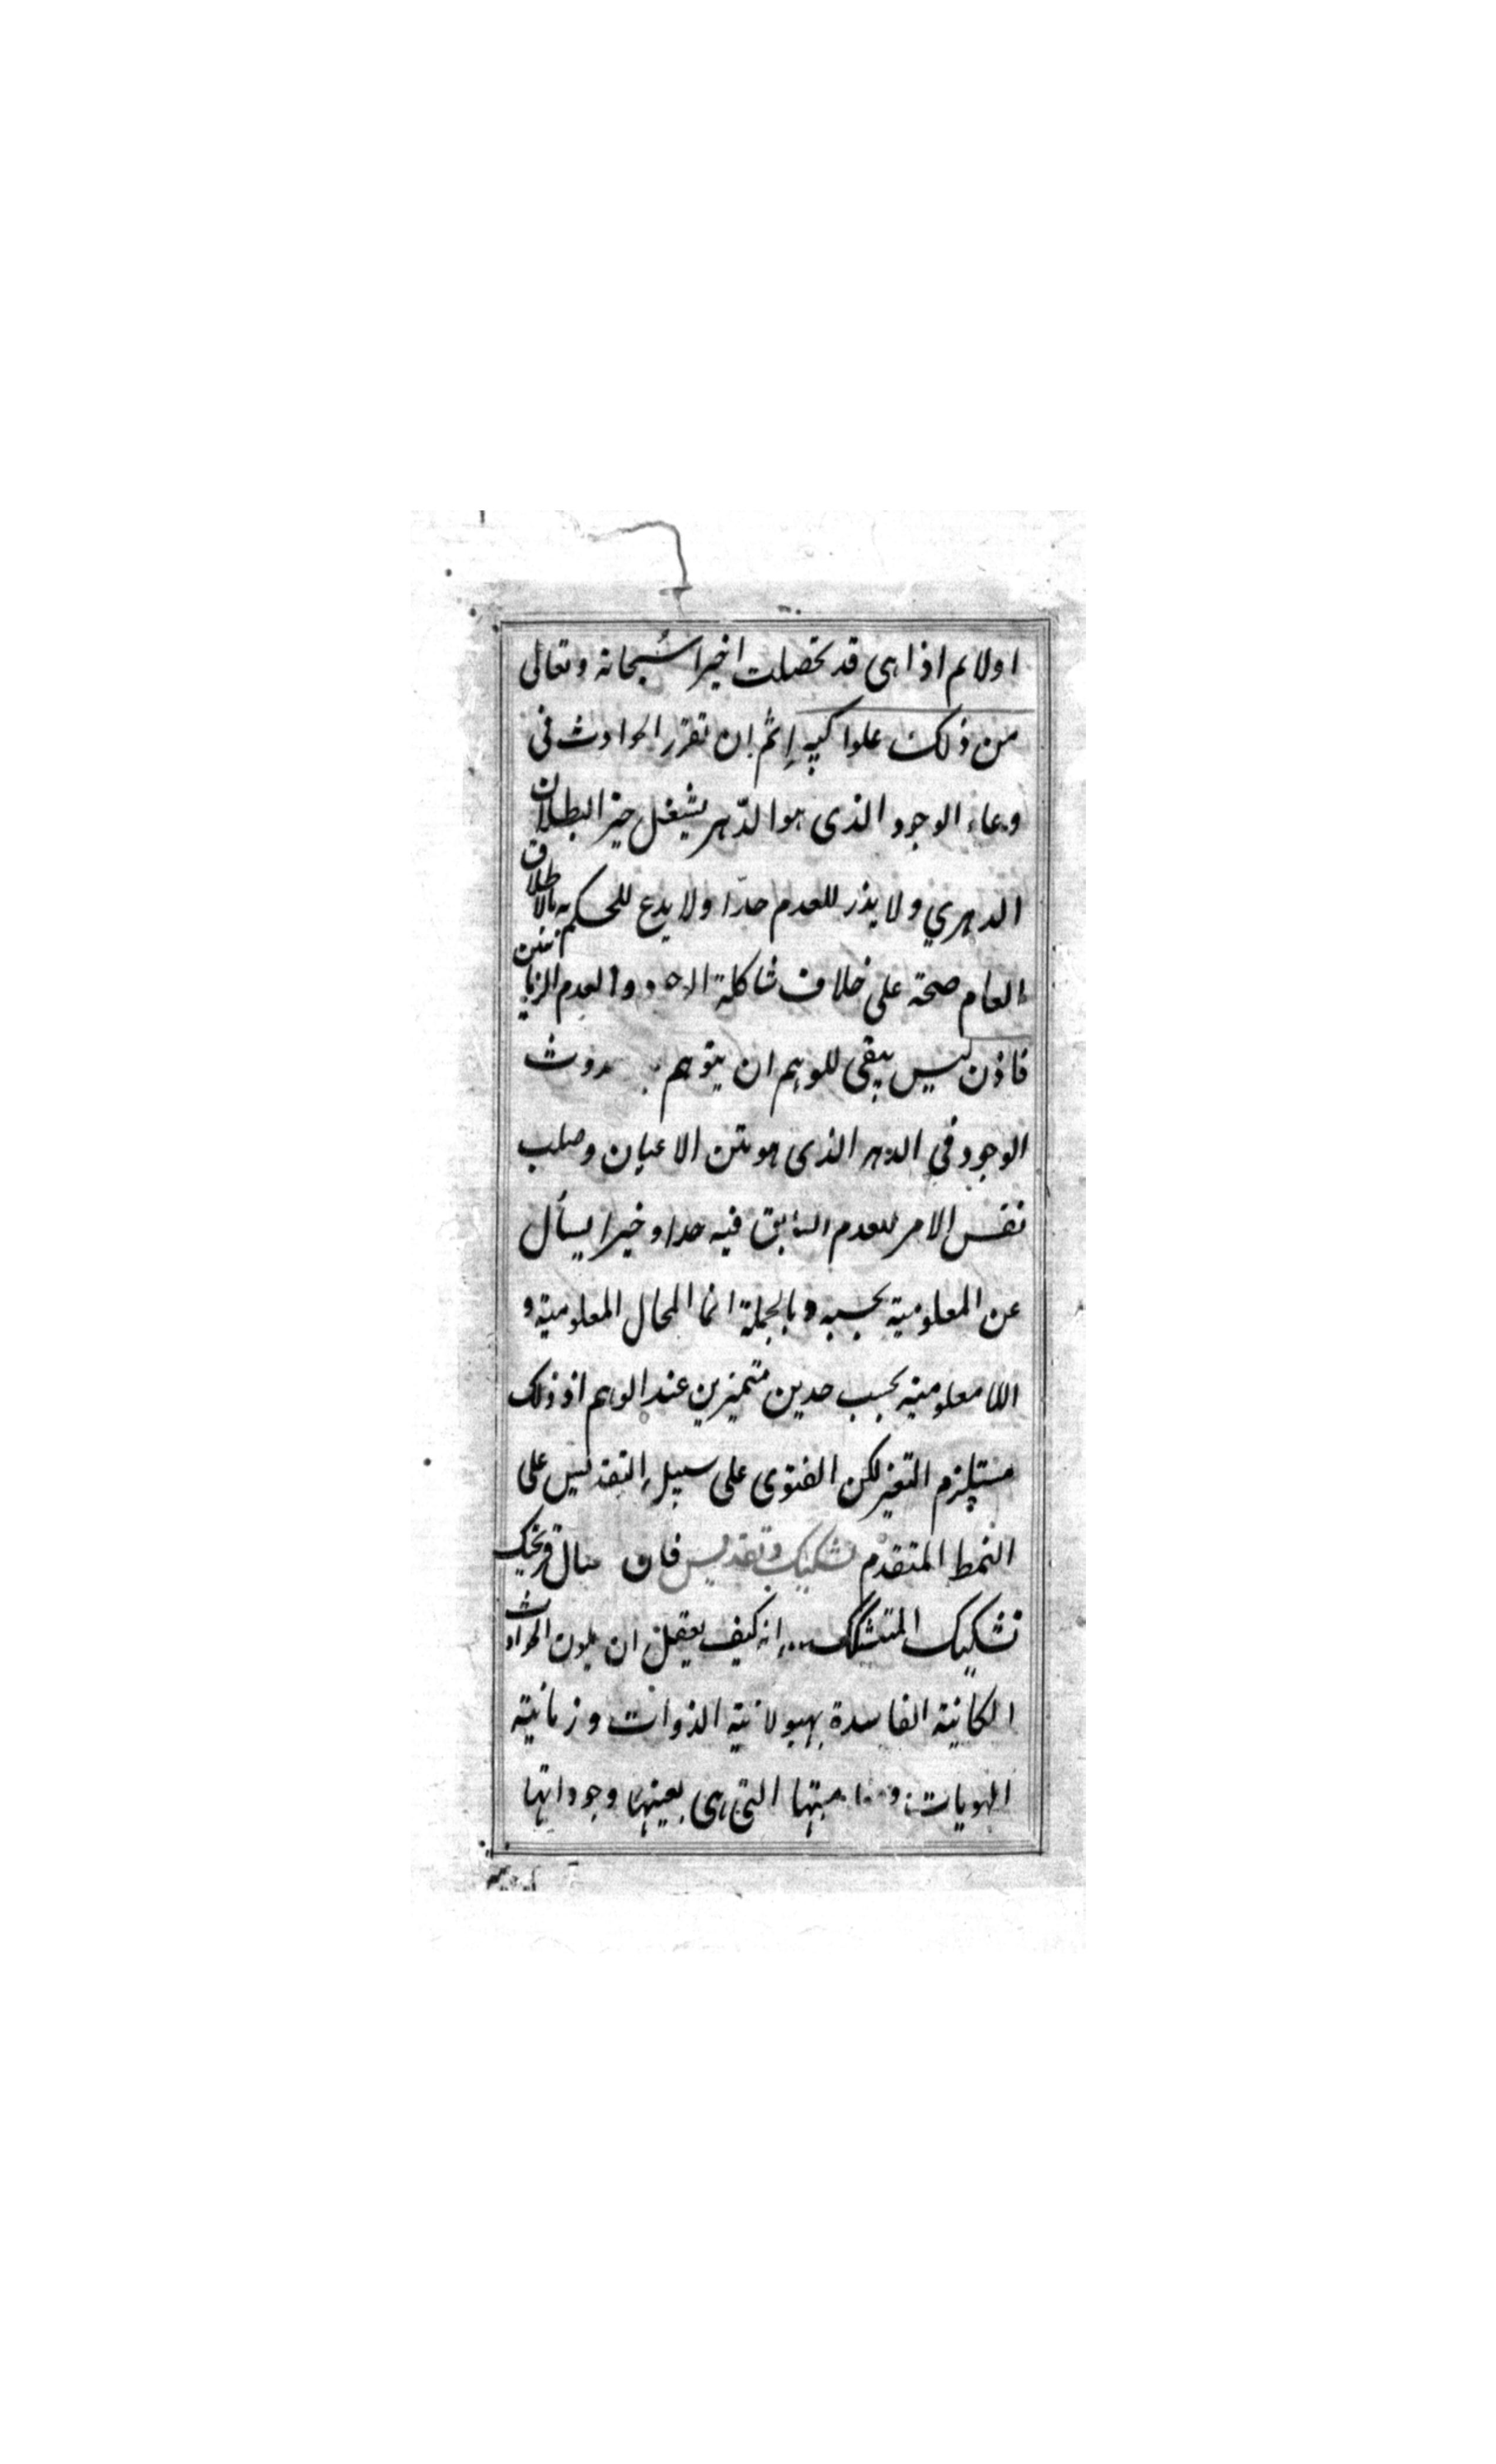 اولا ثم اذا هى قد تحصلت اخيرا سبحانه وتعالى
من ذلك علوا كبيرا ثم ان تقرر الحوادث فى
وعاء الوجود الذى هو الدّهر يشغل حيز البطلان
الدهري ولا يذر للعدم حدّا ولا يدع للحكم به بالاطلاق
العام صحة على خلاف شاكلة والعدم الزمانيين
فاذن ليس يبقى للوهم ان يتوهم
الوجود في الدهر الذى هو متن الاعيان وصلب
نفس الامر للعدم السابق فيه حدا و يسأل
عن المعلومية بحسبه وبالجملة انما المحال المعلومية و
اللا معلومية بحسب حدين متميزين عند الوهم اذ ذلك
مستلزم التغير لكن الفتوى على سبيل التقديس على
النمط المتقدم تشكيك وتقديس فان قريحتك
تشكيك المتشكك انه كيف يعقل ان يكون الحوادث
الكائنة الفاسدة بهيولانية الذوات وزمانية
الهويات التى هى بعينها وجوداتها